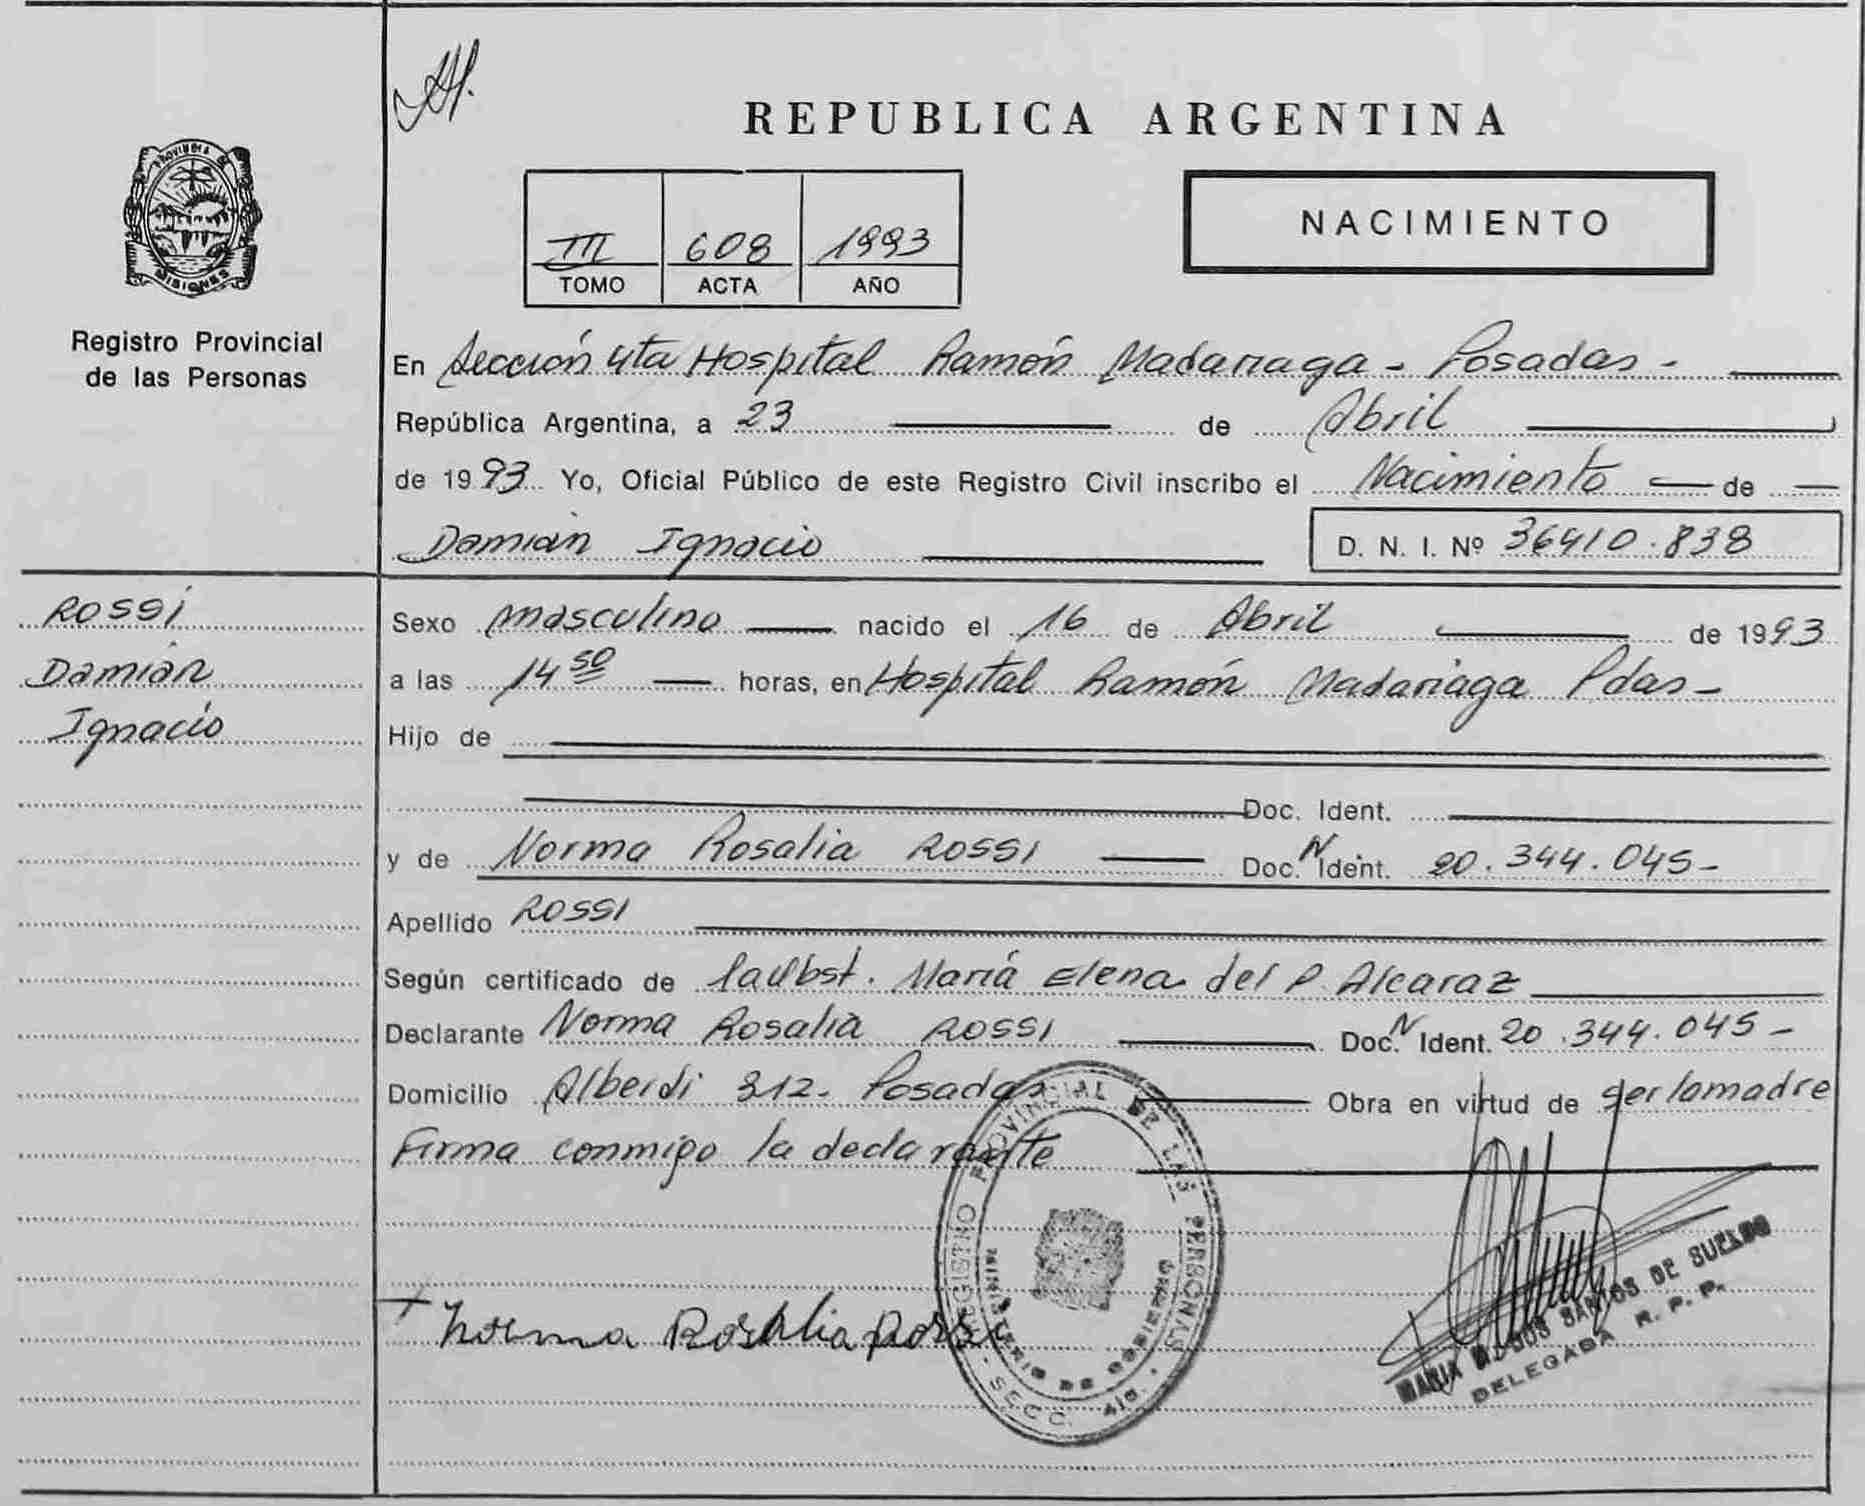 PROVINCIA DE
MISIONES
Registro Provincial
de las Personas
REPUBLICA ARGENTINA
III 608 1993
TOMO ACTA AÑO
NACIMIENTO
En Sección 4ta Hospital Ramón Madariaga - Posadas -
República Argentina, a 23 de Abril
de 1993 Yo, Oficial Público de este Registro Civil inscribo el Nacimiento de
Damián Ignacio D. N. I. Nº 36410.838
ROSSI
Damián
Ignacio
Sexo masculino nacido el 16 de Abril de 1993
a las 14 50 horas, en Hospital Ramón Madariaga Pdas -
Hijo de
Doc. Ident.
y de Norma Rosalia ROSSI Doc. N Ident. 20.344.045 -
Apellido ROSSI
Según certificado de la Obst. María Elena del P. Alcaraz
Declarante Norma Rosalia ROSSI Doc. N Ident. 20.344.045 -
Domicilio Alberdi 312 - Posadas Obra en virtud de ser la madre
Firma conmigo la declarante
REGISTRO PROVINCIAL DE LAS PERSONAS
MINISTERIO DE GOBIERNO
SECC. 4ta.
Norma Rosalia Rossi
MARIA DOS SANTOS DE SUELDO
DELEGADA R. P. P.